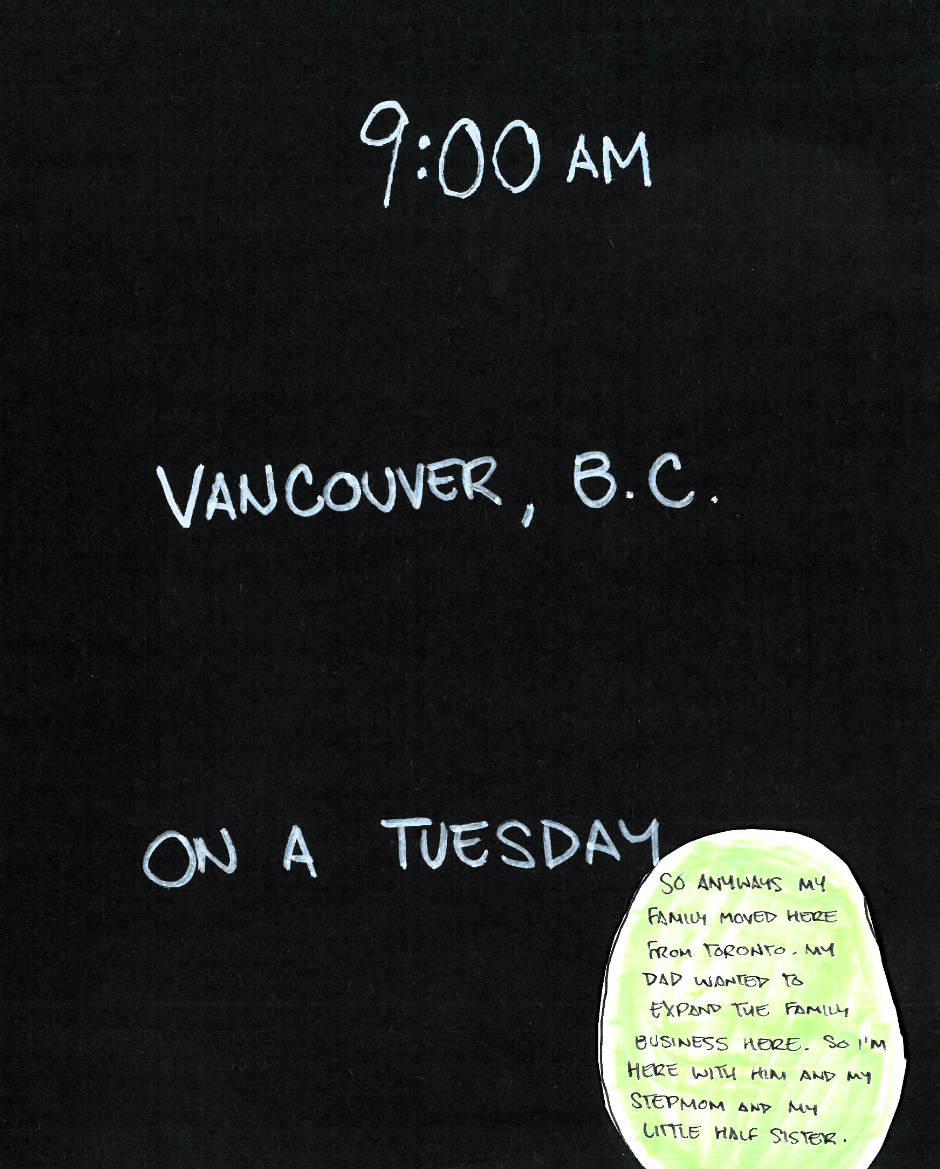 9:00 AM
VANCOUVER, B.C.
ON A TUESDAY
SO ANYWAYS MY
FAMILY MOVED HERE
FROM TORONTO. MY
DAD WANTED TO
EXPAND THE FAMILY
BUSINESS HERE. SO I'M
HERE WITH HIM AND MY
STEPMOM AND MY
LITTLE HALF SISTER.